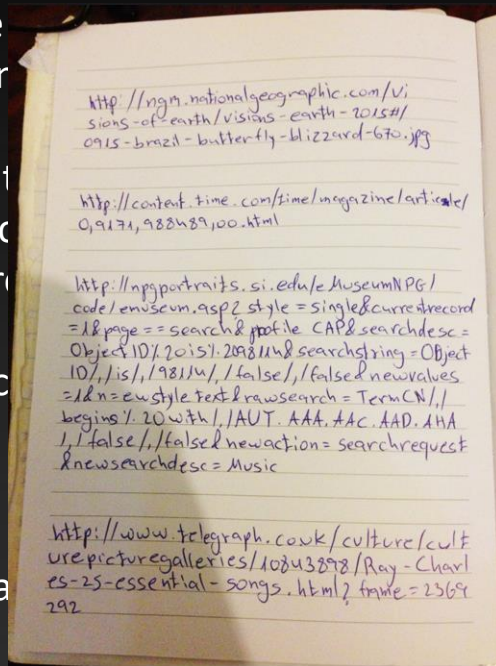 http://ngm.nationalgeographic.com/vi
sions-of-earth/visions-earth-2015#/
0915-brazil-butterfly-blizzard-670.jpg
http://content.time.com/time/magazine/article/
0,9171,988489,00.html
http://npgportraits.si.edu/eMuseumNPG/
code/emuseum.asp? style=single&currentrecord
=1&page==search&profile CAP&searchdesc=
Object ID%20is%2098114&searchstring=Object
ID/,/is/,/98114/,/false/,/false&newvalues
=1&n=ewstyle text&rawsearch=TermCN/,/
begins%20with/,/AUT.AAA.AAC.AAD.AHA
/,/false/,/false&newaction=searchrequest
&newsearchdesc=Music
http://www.telegraph.co.uk/culture/cult
urepicturegalleries/10843898/Ray-Charl
es-25-essential-songs.html?frame=2369
292